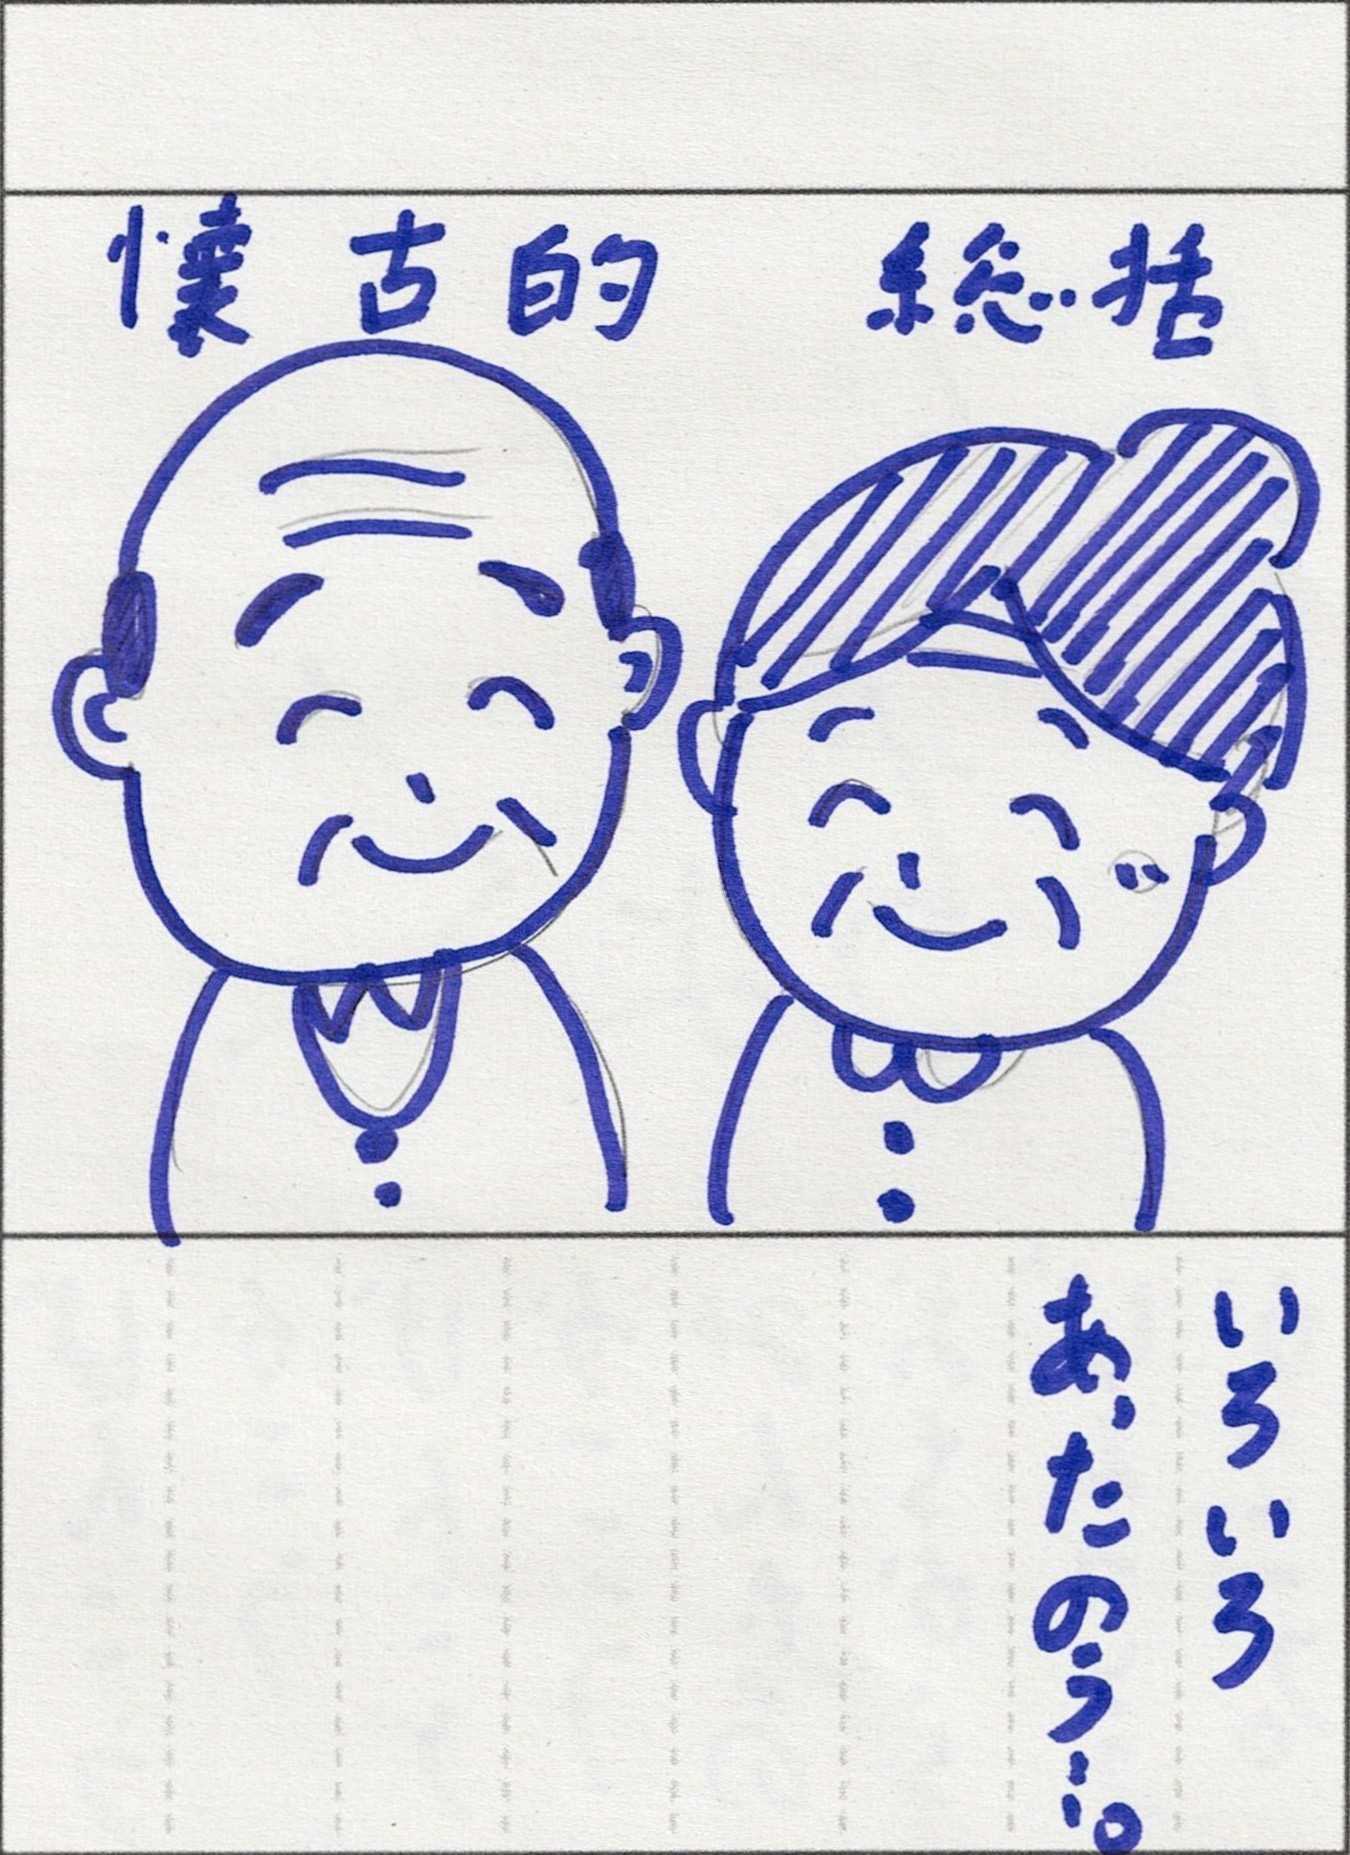 懐古的 総括
いろいろ
あったのう…。